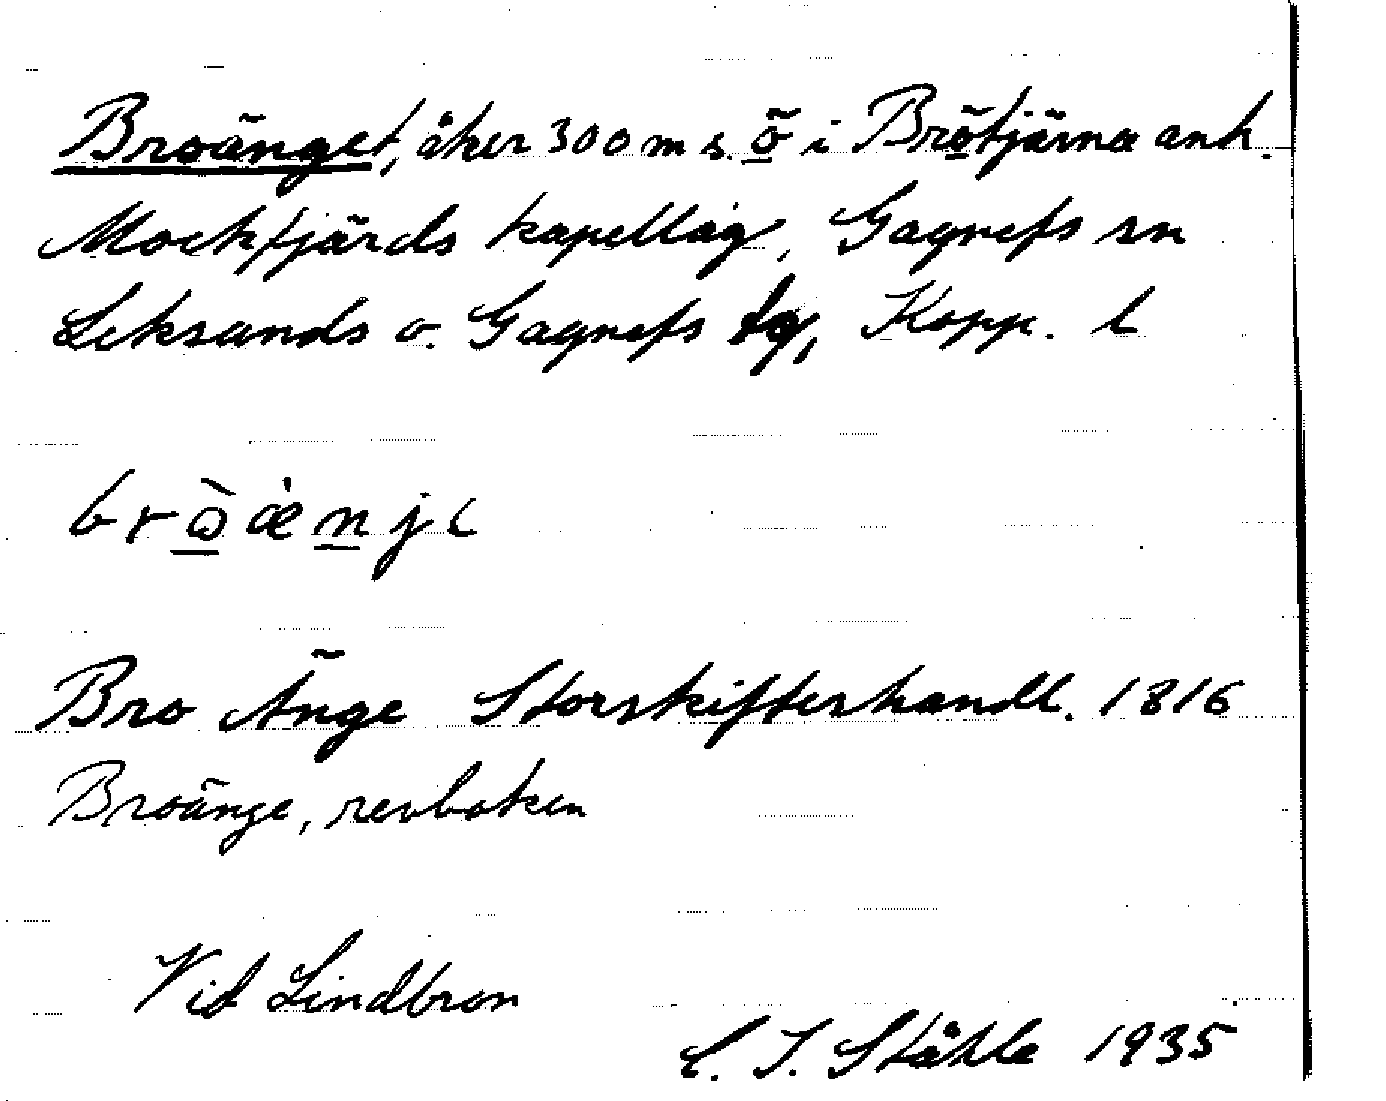 Broänget, åker 300 m s. ö i Brötjärna ank.
Mockfjärds kapellag, Gagnefs sn
Leksands o. Gagnefs tg, Kopp. l
brò̱ æ̀n̲jɩ
Bro Änge Storskifteshandl. 1816
Broänge, revboken
Vid Lindbron
C. I. Ståhle 1935